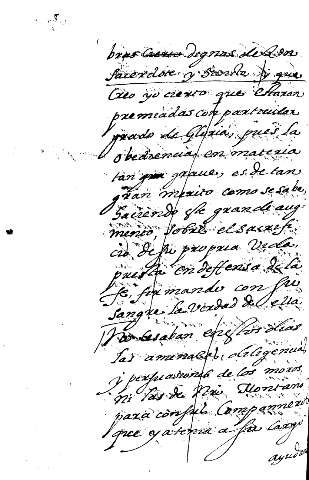 bras Cierto dignas de la on
Sacerdote, y y que
Creo yo cierto que estaran
premiadas con particular
grado de Gloria, pues la
obediencia en materia
tan grave, es de tan
gran merito como se sabe
haciendo se grande aug
mento sobre el sacrifi
cio de su propria Vida
puesta en deffensa de la
fe, firmando con su
sangre la Verdad de ella
No cesaban en estos dias
las amenazas, diligencias
y persuasiones de los moros
ni las de Montano
para con su Compannero
que ya tenia a su cargo
ayuda